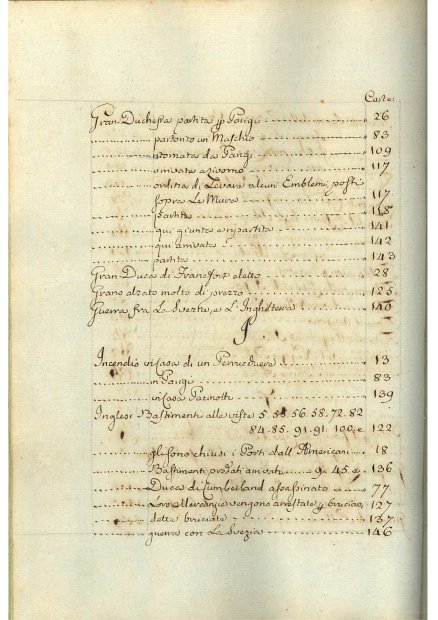 Carte
Gran-Duchessa partita p Parigi 26
partorito un Maschio 83
ritornata da Parigi 109
arrivata a Livorno 117
ordina di Levare alcuni Emblemi posti
sopra Le Mura 117
partita 118
qui giunta e ripartita 141
qui arrivata 142
partita 143
Gran-Duca di Francfort eletto 28
Grano alzato molto di prezzo 125
Guerra fra La Svezia, e L'Inghilterra 140
I
Incendio in Casa di un Perrucchiere 13
in Parigi 83
in Casa 139
Inglesi Bastimenti alle viste 5. 55. 56. 58. 72. 82
84. 85. 91. 91. 100. e 122
gli sono chiusi i Porti dall' Americani 18
Bastimenti predati arrivati 9. 45. e 136
Duca di Cumberland assassinato 77
Loro Mercanzie vengono arrestate, e bruciate 127
dette bruciate 137
guerra con La Svezia 146